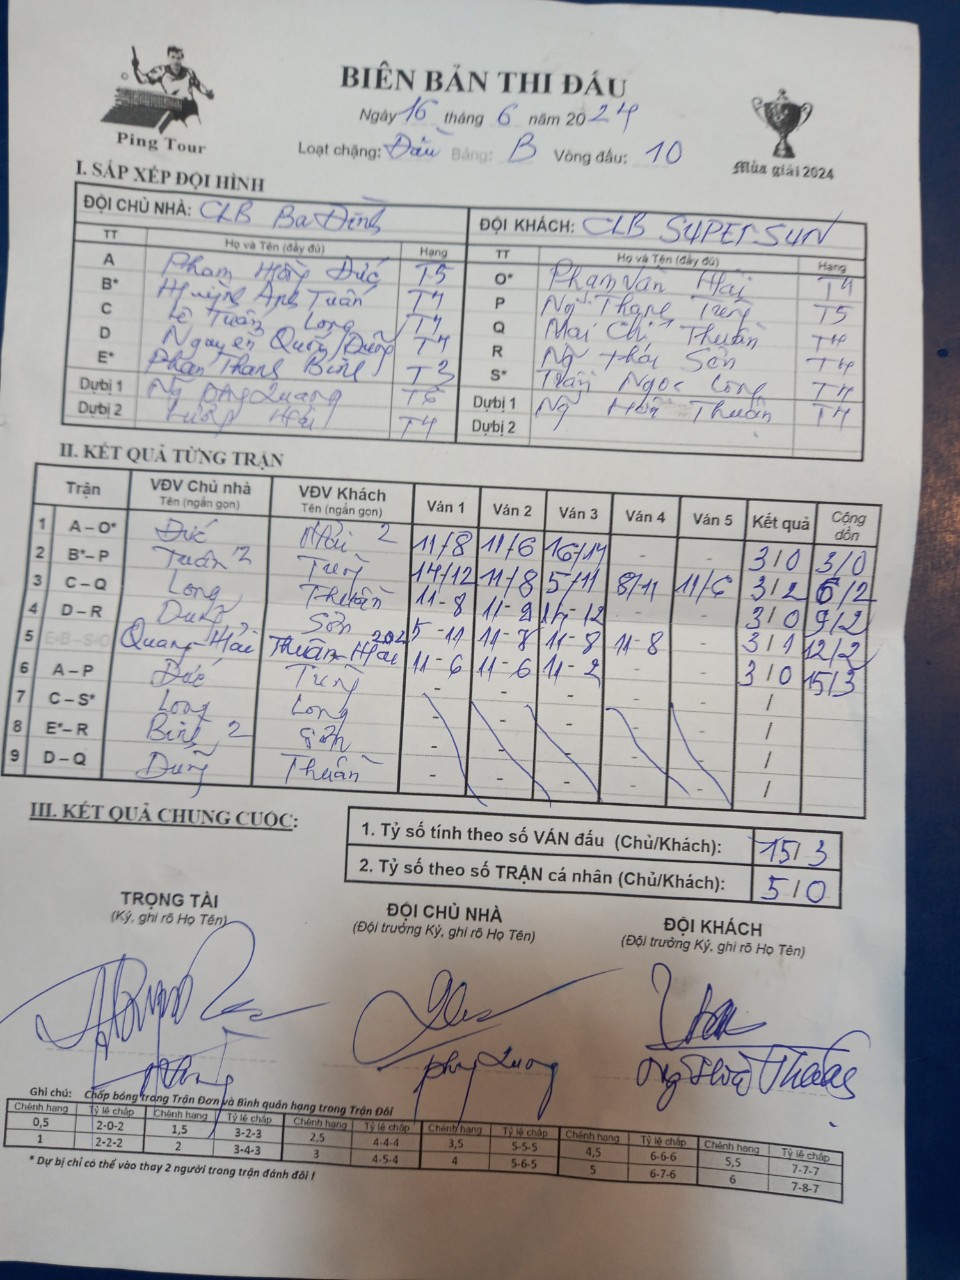 BIÊN BẢN THI ĐẤU
Ngày 16 tháng 6 năm 2024
Ping Tour
Loạt chặng: Đấu Bảng: B Vòng đấu: 10
Mùa giải 2024
I. SẮP XẾP ĐỘI HÌNH
ĐỘI CHỦ NHÀ: CLB Ba Đình ĐỘI KHÁCH: CLB SUPER SUN
TT Họ và Tên (đầy đủ) Hạng TT Họ và Tên (đầy đủ) Hạng
A Phạm Hồng Đức T5 O* Phạm Văn Hải T4
B* Huỳnh Anh Tuấn T4 P Ng Thành Trung T5
C Lê Tuấn Long T4 Q Mai Chí Thuần T4
D Nguyễn Quốc Dũng T4 R Ng Thái Sơn T4
E* Phan Thanh Bình T3 S* Trần Ngọc Long T4
Dự bị 1 Ng Quang T6 Dự bị 1 Ng Hòa Thuận T4
Dự bị 2 Hải T4 Dự bị 2
II. KẾT QUẢ TỪNG TRẬN
Trận VĐV Chủ nhà Tên (ngắn gọn) VĐV Khách Tên (ngắn gọn) Ván 1 Ván 2 Ván 3 Ván 4 Ván 5 Kết quả Cộng dồn
1 A – O* Đức Hải 2 11/8 11/6 16/14 - - 3/0 3/0
2 B* – P Tuấn 2 Trung 14/12 11/8 5/11 8/11 11/6 3/2 6/2
3 C – Q Long Thuần 11-8 11-9 14-12 - - 3/0 9/2
4 D – R Dũng Sơn 5-11 11-7 11-8 11-8 - 3/1 12/2
5 E-B – S-O Quang-Hải Thuần-Hải 11-6 11-6 11-2 - - 3/0 15/3
6 A – P Đức Trung - - - - - /
7 C – S* Long Long - - - - - /
8 E* – R Bình 2 Sơn - - - - - /
9 D – Q Dũng Thuần - - - - - /
III. KẾT QUẢ CHUNG CUỘC:
1. Tỷ số tính theo số VÁN đấu (Chủ/Khách): 15/3
2. Tỷ số theo số TRẬN cá nhân (Chủ/Khách): 5/0
TRỌNG TÀI ĐỘI CHỦ NHÀ ĐỘI KHÁCH
(Ký, ghi rõ Họ Tên) (Đội trưởng Ký, ghi rõ Họ Tên) (Đội trưởng Ký, ghi rõ Họ Tên)
Ghi chú: Chấp bóng trong Trận Đơn và Bình quân hạng trong Trận Đôi
Chênh hạng Tỷ lệ chấp Chênh hạng Tỷ lệ chấp Chênh hạng Tỷ lệ chấp Chênh hạng Tỷ lệ chấp Chênh hạng Tỷ lệ chấp Chênh hạng Tỷ lệ chấp
0,5 2-0-2 1,5 3-2-3 2,5 4-4-4 3,5 5-5-5 4,5 6-6-6 5,5 7-7-7
1 2-2-2 2 3-4-3 3 4-5-4 4 5-6-5 5 6-7-6 6 7-8-7
* Dự bị chỉ có thể vào thay 2 người trong trận đánh đôi !